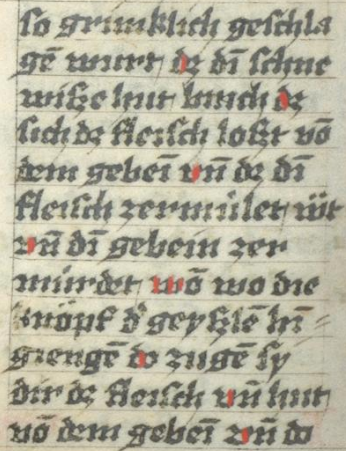 so grimklich geschla
gē wurt dz dī schne
wisze hut brach dz
sich dz fleisch loszt vō
dem gebeī vn̄ dz dī
fleisch zermület wt
vn̄ dī gebein zer
mürdet wō wo die
knöpf d' geyszlē hī=
giengē do zugē sy
dir dz fleisch vn̄ hut
vō dem gebeī vn̄ do